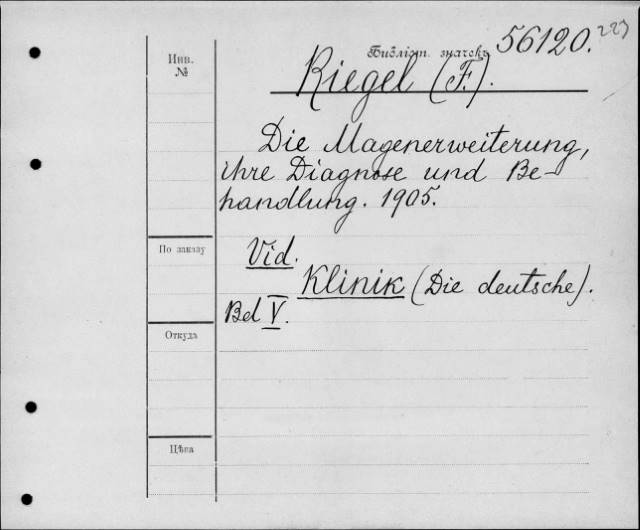 56120. 223
Библіот. значекъ
Инв.
№
Riegel (F.).
Die Magenerweiterung,
ihre Diagnose und Be-
handlung. 1905.
По заказу
Vid.
Klinik (Die deutsche).
Bd V.
Откуда
Цѣна